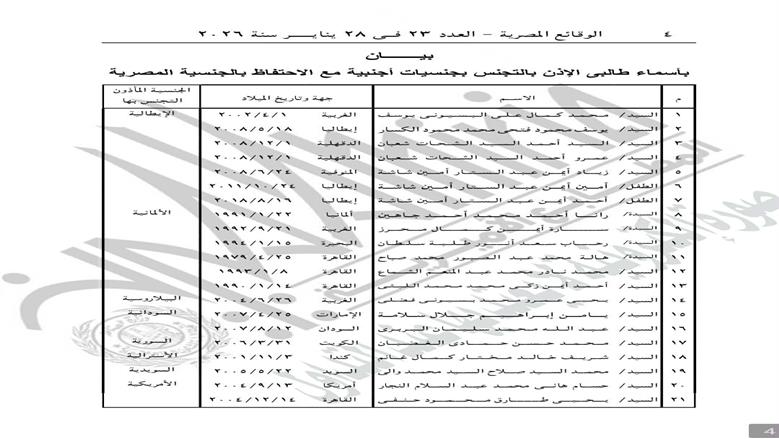 ٤ الوقائع المصرية – العدد ٢٣ فى ٢٨ ينايـــر سنة ٢٠٢٦
بيـــــان
بأسماء طالبى الإذن بالتجنس بجنسيات أجنبية مع الاحتفاظ بالجنسية المصرية
م الاســـم جهة وتاريخ الميلاد الجنسية المأذون التجنس بها
١ السيد/ محمد كمال على البسيونى يوسف الغربية ٢٠٠٢/٤/١ الإيطالية
٢ السيد/ يوسف محمود فتحى محمد محمود الكسار إيطاليا ٢٠٠٨/٥/١٨
٣ السيد/ السيد أحمد السيد الشحات شعبان الدقهلية ٢٠٠٨/١٢/١
٤ السيد/ عمرو أحمد السيد الشحات شعبان الدقهلية ٢٠٠٨/١٢/١
٥ السيد/ زياد أيمن عبد الستار أمين شاشة المنوفية ٢٠٠٨/٦/٢٤
٦ الطفل/ أمين أيمن عبد الستار أمين شاشة إيطاليا ٢٠١١/١٠/٢٤
٧ الطفل/ أحمد أيمن عبد الستار أمين شاشة إيطاليا ٢٠١٨/٨/١٦
٨ السيدة/ رانا أحمد محمد أحمد جاهين ألمانيا ١٩٩١/٢/٢٢ الألمانية
٩ السيدة/ سارة أيمن كمال محرز الغربية ١٩٩٢/٩/٢١
١٠ السيدة/ رحاب سعد أنور طلبة سلطان البحيرة ١٩٩٤/١/١٥
١١ السيدة/ هالة محمد عبد الغفور محمد صباح القاهرة ١٩٧٩/٤/٢٥
١٢ السيد/ محمد نادر محمد عبد المنعم القاهرة ١٩٩٣/١/٨
١٣ السيد/ أحمد أيمن زكى محمد محمد الليثى القاهرة ١٩٩٠/١/١٤
١٤ السيد/ محمد بسيونى الغربية ٢٠٠٤/٦/٢٦ البيلاروسية
١٥ السيد/ يامن إبراهيم جلال سلامة الإمارات ٢٠٠٧/٤/٢٥ السودانية
١٦ السيد/ عبد الله محمد سليمان البربرى السودان ٢٠٠٧/٨/١٢
١٧ السيد/ محمد حسن حمادى الكويت ٢٠٠٦/٣/٢١ السورية
١٨ السيد/ شريف خالد مختار كمال غانم كندا ٢٠٠١/١١/٣ الأسترالية
١٩ السيد/ محمد السيد صلاح السيد محمد والى السويد ٢٠٠٥/٥/٢٢ السويدية
٢٠ السيد/ حسام هانى محمد عبد السلام النجار أمريكا ٢٠٠٤/٩/١٣ الأمريكية
٢١ السيد/ يحيى طارق محمود حنفى القاهرة ٢٠٠٤/١٢/١٤
4